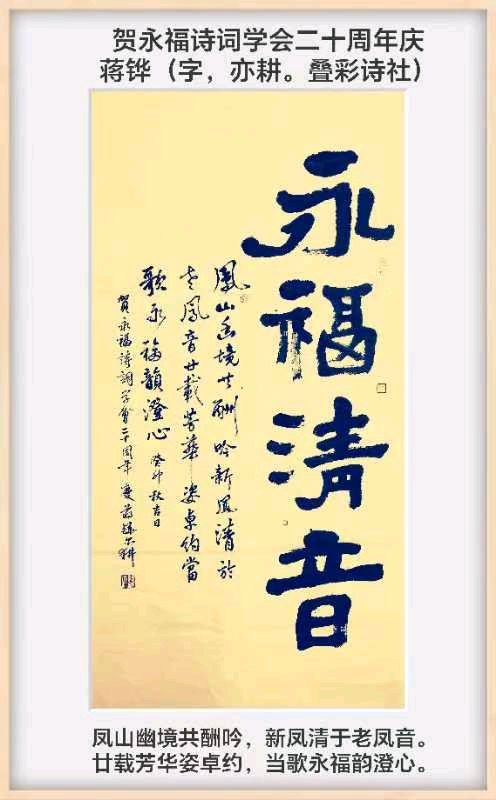 贺永福诗词学会二十周年庆
蒋铧（字，亦耕。叠彩诗社）
永福清音
鳳山幽境共酬吟新鳳清於
老鳳音廿載芳華姿卓約當
歌永福韻澄心 癸卯秋吉日
賀永福詩詞学會二十周年慶蒋铧亦耕
凤山幽境共酬吟，新凤清于老凤音。
廿载芳华姿卓约，当歌永福韵澄心。